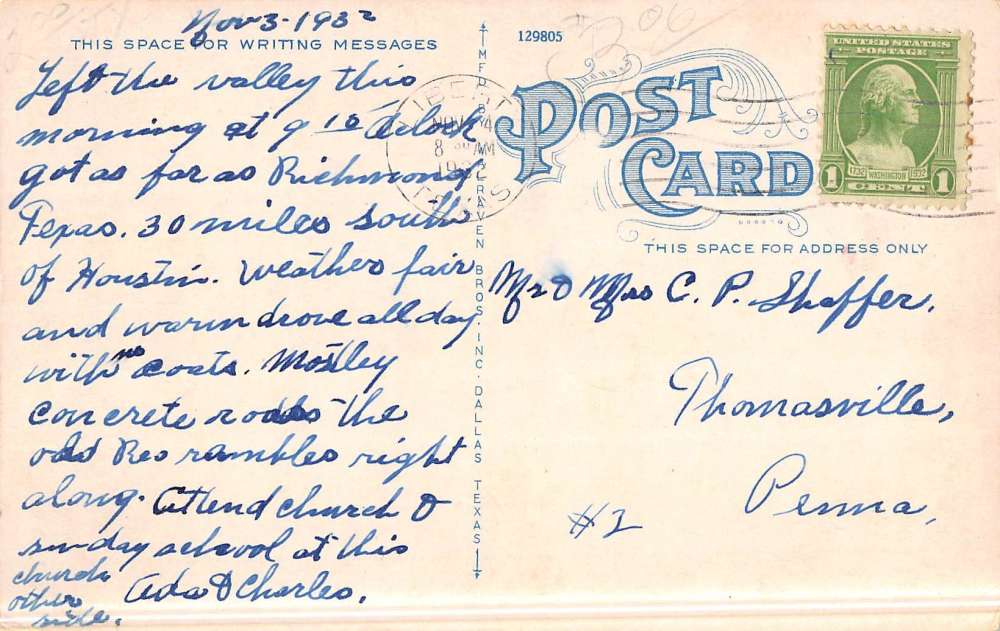 Nov 3-1932
THIS SPACE FOR WRITING MESSAGES
Left the valley this
morning at 9 10 Oclock
got as far as Richmond
Texas. 30 miles south
of Houstin. Weather fair
and warm drove all day
with no coats. Mostley
concrete roads the
old Reo rambles right
along. Attend church &
sunday school at this
church
other
side.
Ada & Charles.
MFD. BY GRAVEN BROS. INC. DALLAS TEXAS
129805
POST
CARD
NOV 4
8 AM
UNITED STATES
POSTAGE
1732 WASHINGTON 1932
1 CENT 1
THIS SPACE FOR ADDRESS ONLY
Mr & Mrs C. P. Shaffer.
Thomasville,
Penna,
#2